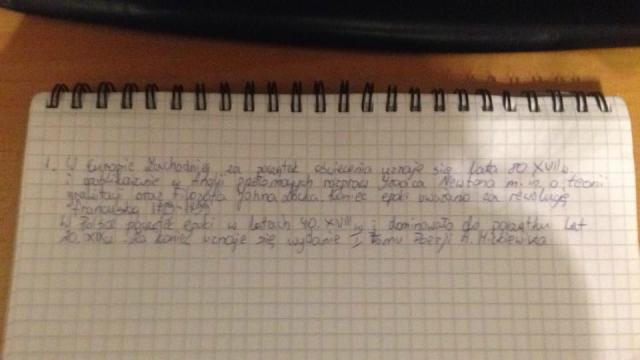 1. W Europie Zachodniej za początek oświecenia uznaje się lata 80. XVII w.
i opublikowanie w Anglii przełomowych rozpraw Isaaca Newtona m. in. o teorii
grawitacji oraz filozofa Johna Locka. Koniec epoki uważano za rewolucję
Francuską 1789-1799.
W Polsce początek epoki w latach 40. XVIII w. i dominowało do początku lat
20. XIX w. Za koniec uznaje się wydanie I tomu Poezji A. Mickiewicza